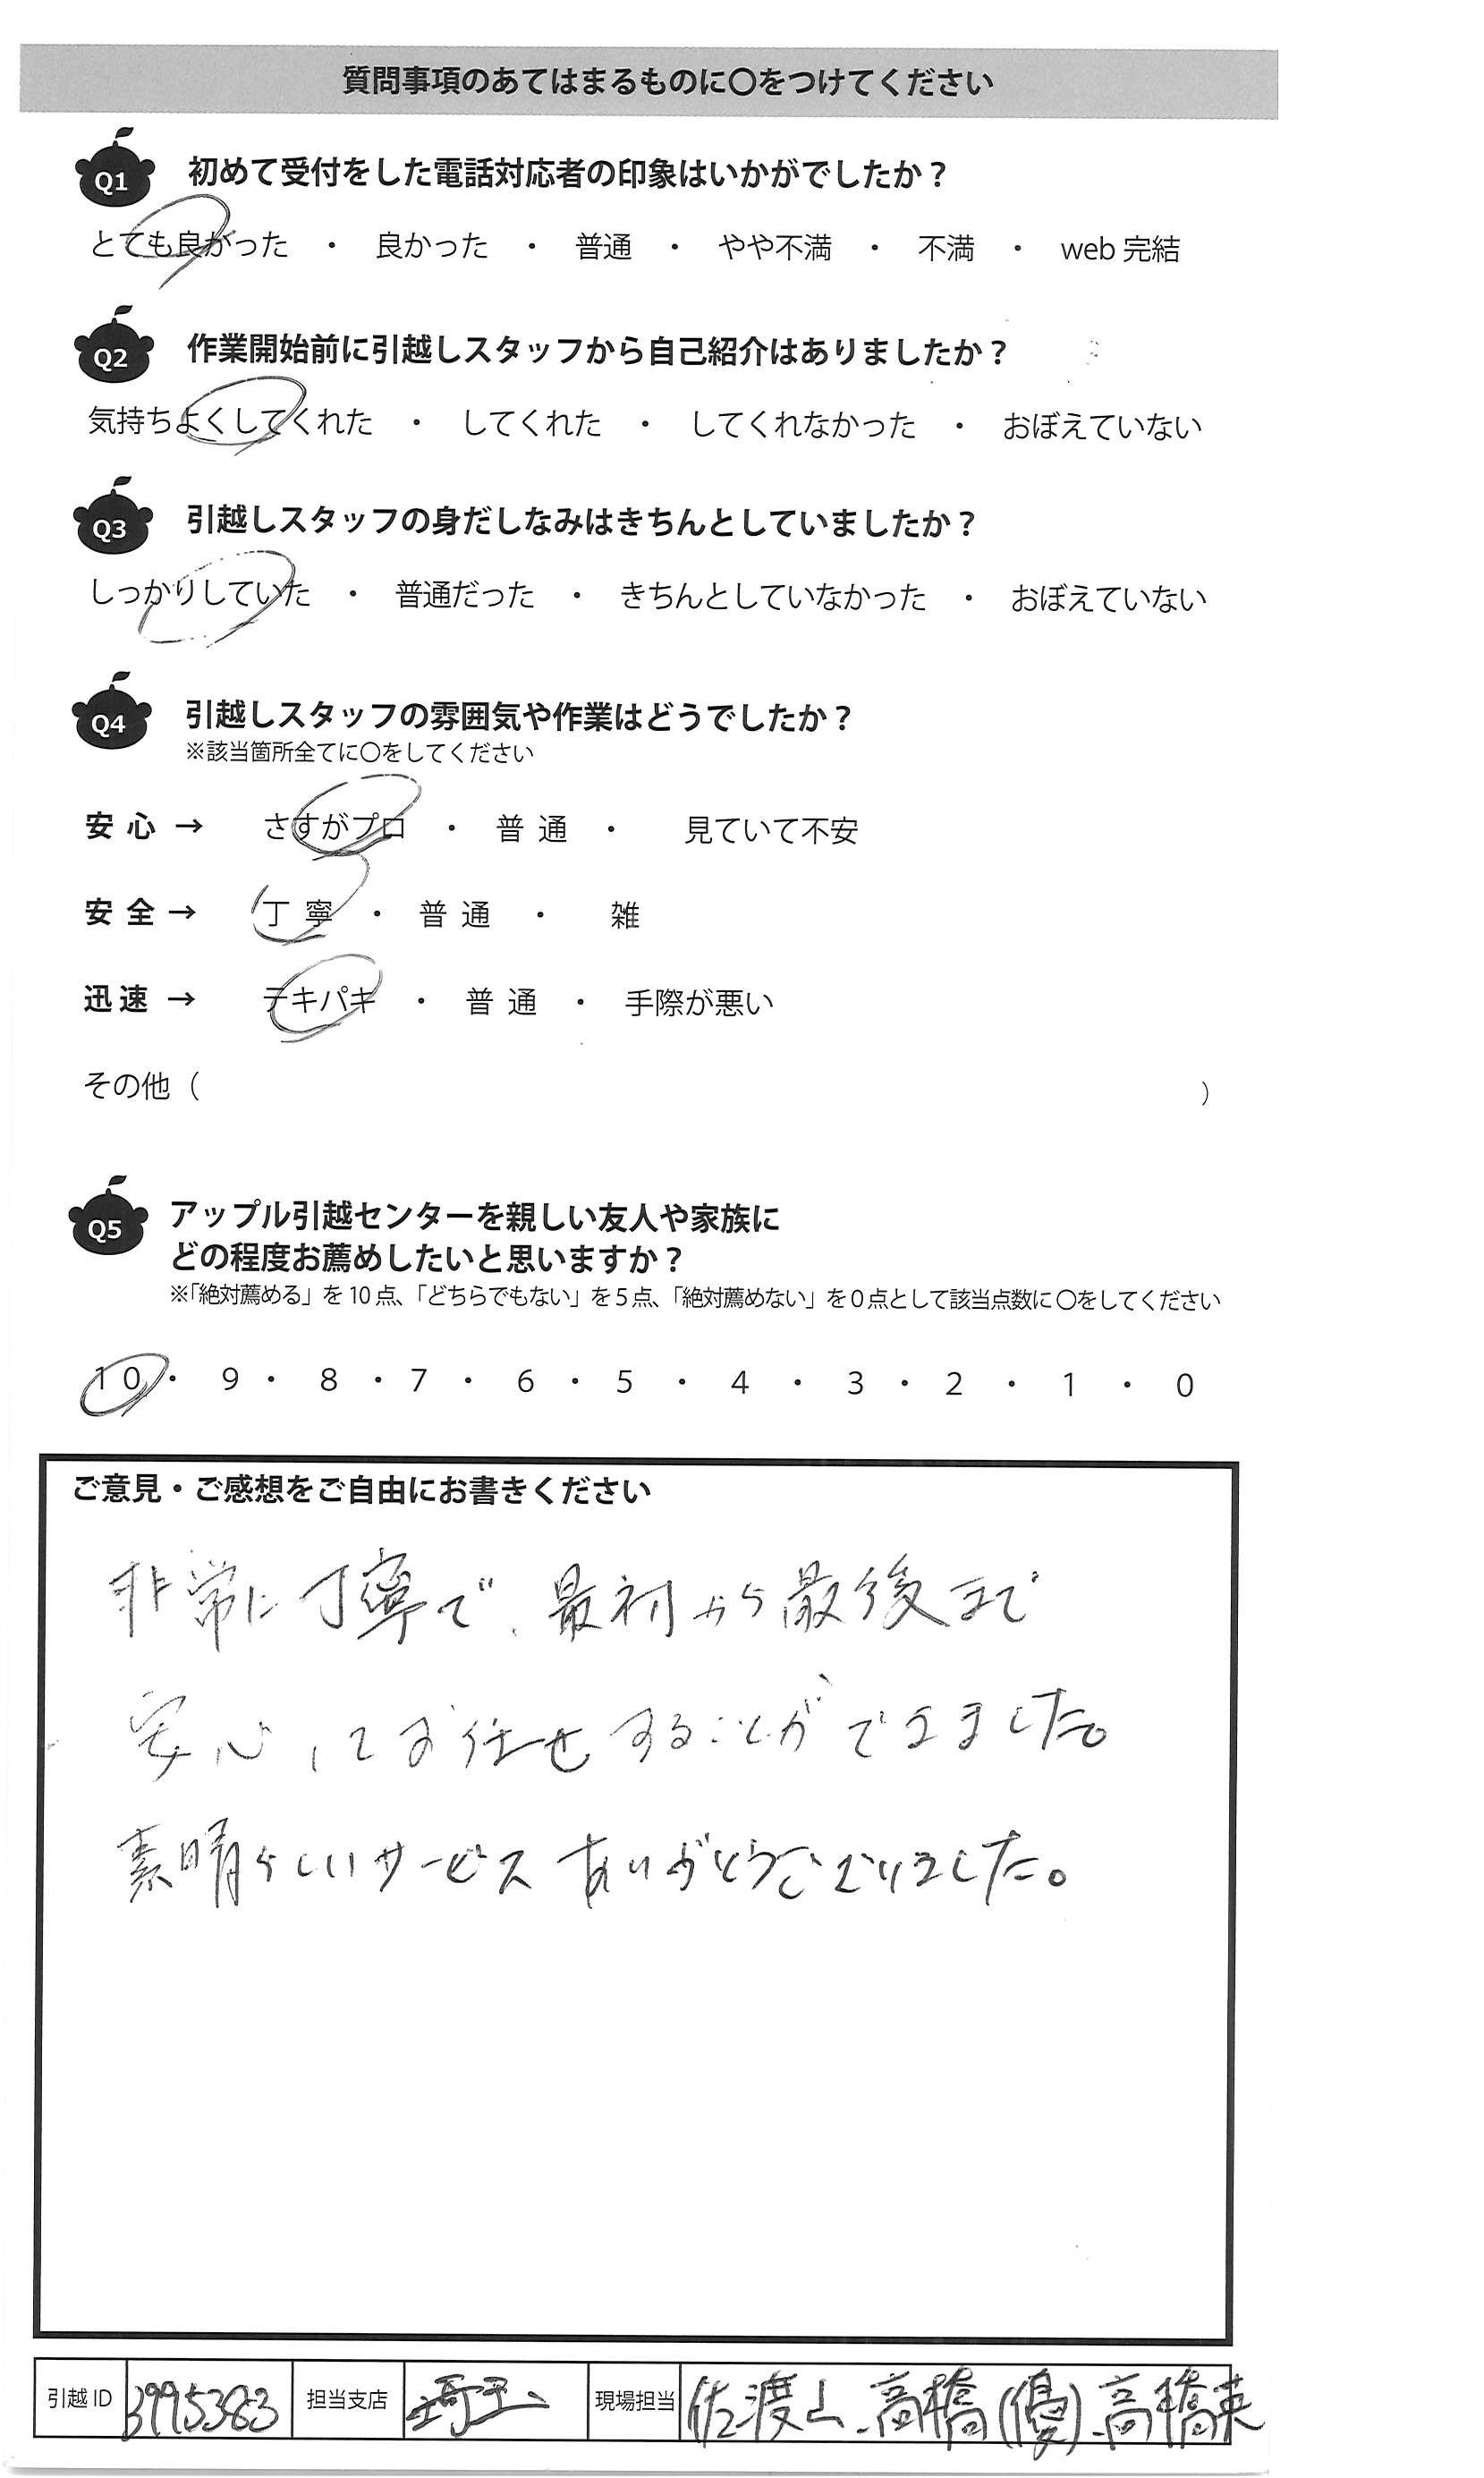 質問事項のあてはまるものに〇をつけてください
Q1 初めて受付をした電話対応者の印象はいかがでしたか？
とても良かった ・ 良かった ・ 普通 ・ やや不満 ・ 不満 ・ web 完結
Q2 作業開始前に引越しスタッフから自己紹介はありましたか？
気持ちよくしてくれた ・ してくれた ・ してくれなかった ・ おぼえていない
Q3 引越しスタッフの身だしなみはきちんとしていましたか？
しっかりしていた ・ 普通だった ・ きちんとしていなかった ・ おぼえていない
Q4 引越しスタッフの雰囲気や作業はどうでしたか？
※該当箇所全てに〇をしてください
安心 → さすがプロ ・ 普通 ・ 見ていて不安
安全 → 丁寧 ・ 普通 ・ 雑
迅速 → テキパキ ・ 普通 ・ 手際が悪い
その他（ ）
Q5 アップル引越センターを親しい友人や家族に
どの程度お薦めしたいと思いますか？
※「絶対薦める」を 10 点、「どちらでもない」を 5 点、「絶対薦めない」を 0 点として該当点数に 〇をしてください
10 ・ 9 ・ 8 ・ 7 ・ 6 ・ 5 ・ 4 ・ 3 ・ 2 ・ 1 ・ 0
ご意見・ご感想をご自由にお書きください
非常に丁寧で、最初から最後まで
安心してお任せすることができました。
素晴らしいサービスありがとうございました。
引越 ID 3995383 担当支店 埼玉 現場担当 佐渡山、高橋(優)、高橋英